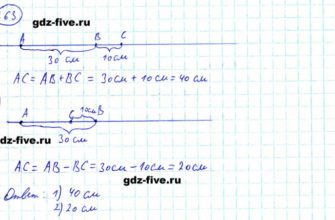 63
gdz-five.ru
A B C
30 см 10см
AC = AB + BC = 30см + 10см = 40 см
A C 10см B
dz-five.ru
30 см
AC = AB - BC = 30см - 10см = 20см
gdz-five.ru
Ответ: 1) 40 см
2) 20 см